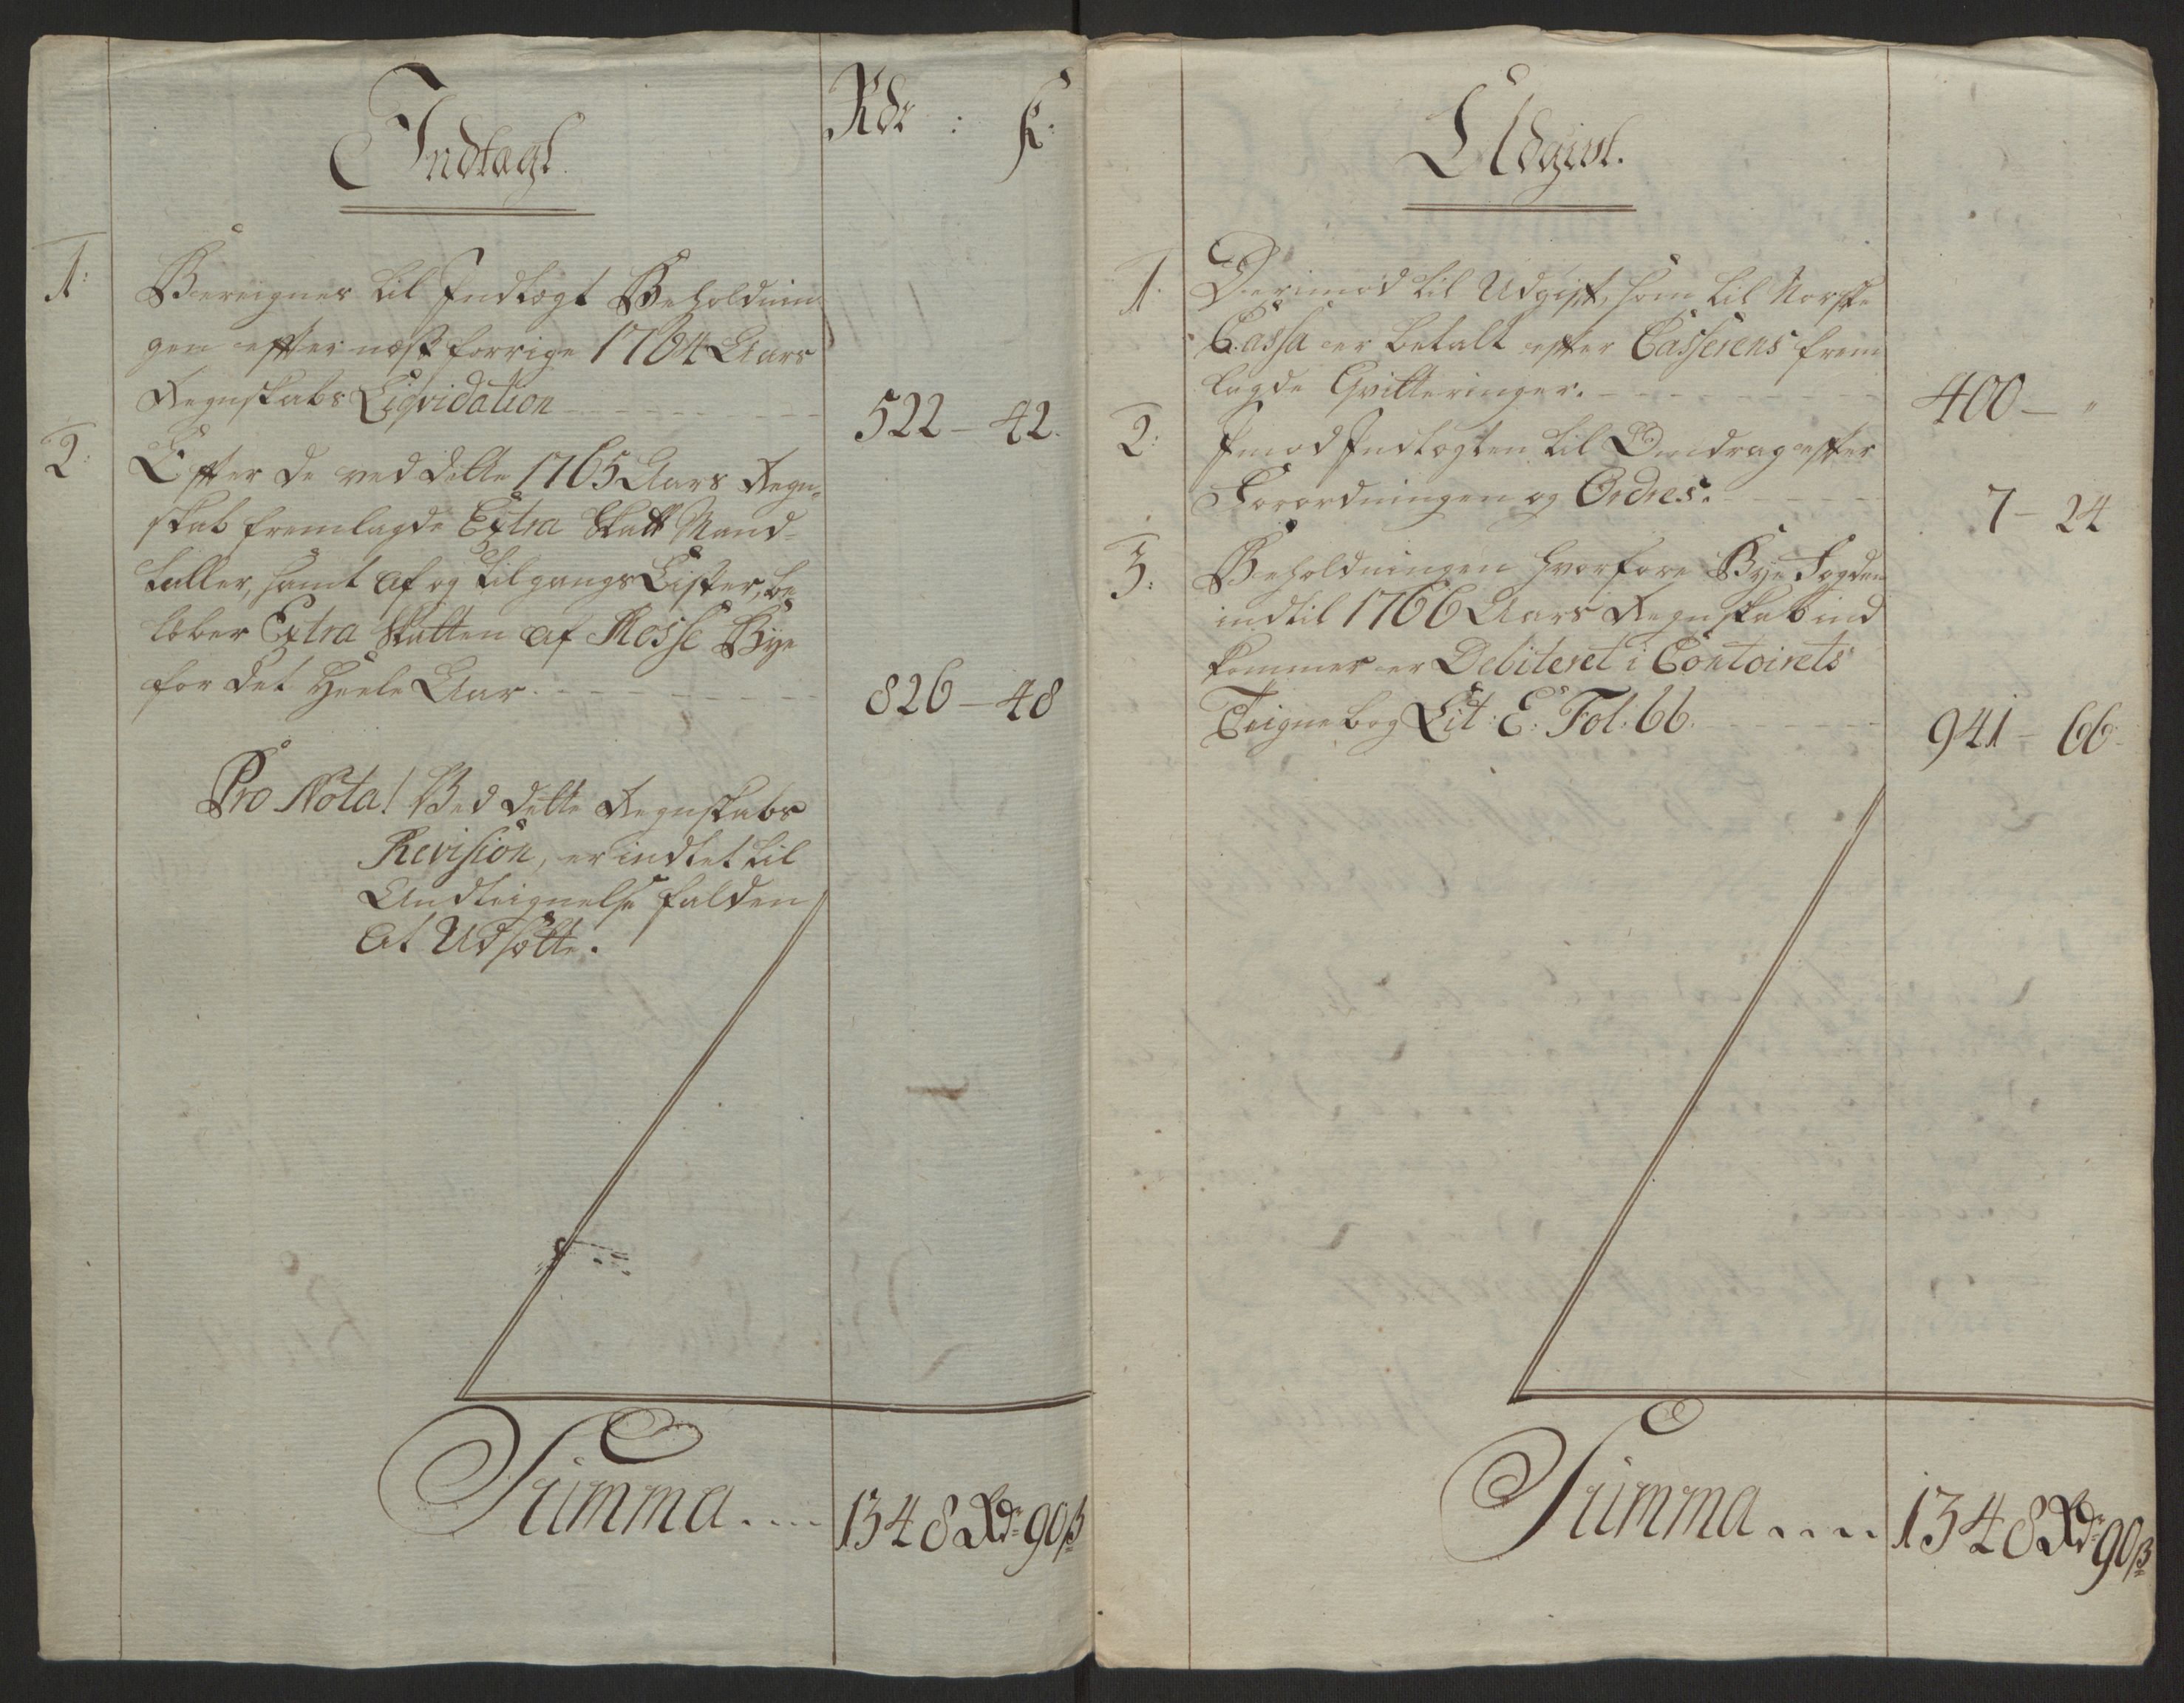 Indtægt.
Rdr : ß:
1: Bereignes til Indtægt Beholdnin
gen efter næst forrige 1764 Aars
Regnskabs Liqvidation 522 – 42.
2: Efter de ved dette 1765 Aars Regn-
skab fremlagde Extra Skatt Mand-
taller, samt af og tilgangs Lister, be
løber Extra Skatten af Mosse Bye
for det Heele Aar. 826 – 48
Pro Nota! Ved dette Regnskabs
Revision, er indtet til
Andteignelse falden
at Udsætte.
Summa .... 1348 Rdr 90 ß
Udgivt.
1. Derimod til Udgift, som til Norske
Cassa er betalt efter Casserens frem
lagde Qvitteringer. 400 – "
2: Imod Indtægten til Omdrag efter
Forordningen og Ordres. 7 – 24
3: Beholdningen hvorfore Bye Fogden
indtil 1766 Aars Regnskab ind
kommer er Debiteret i Contoirets
Teignebog Lit: E: Fol: 66. 941 – 66
Summa .... 1348 Rdr 90 ß